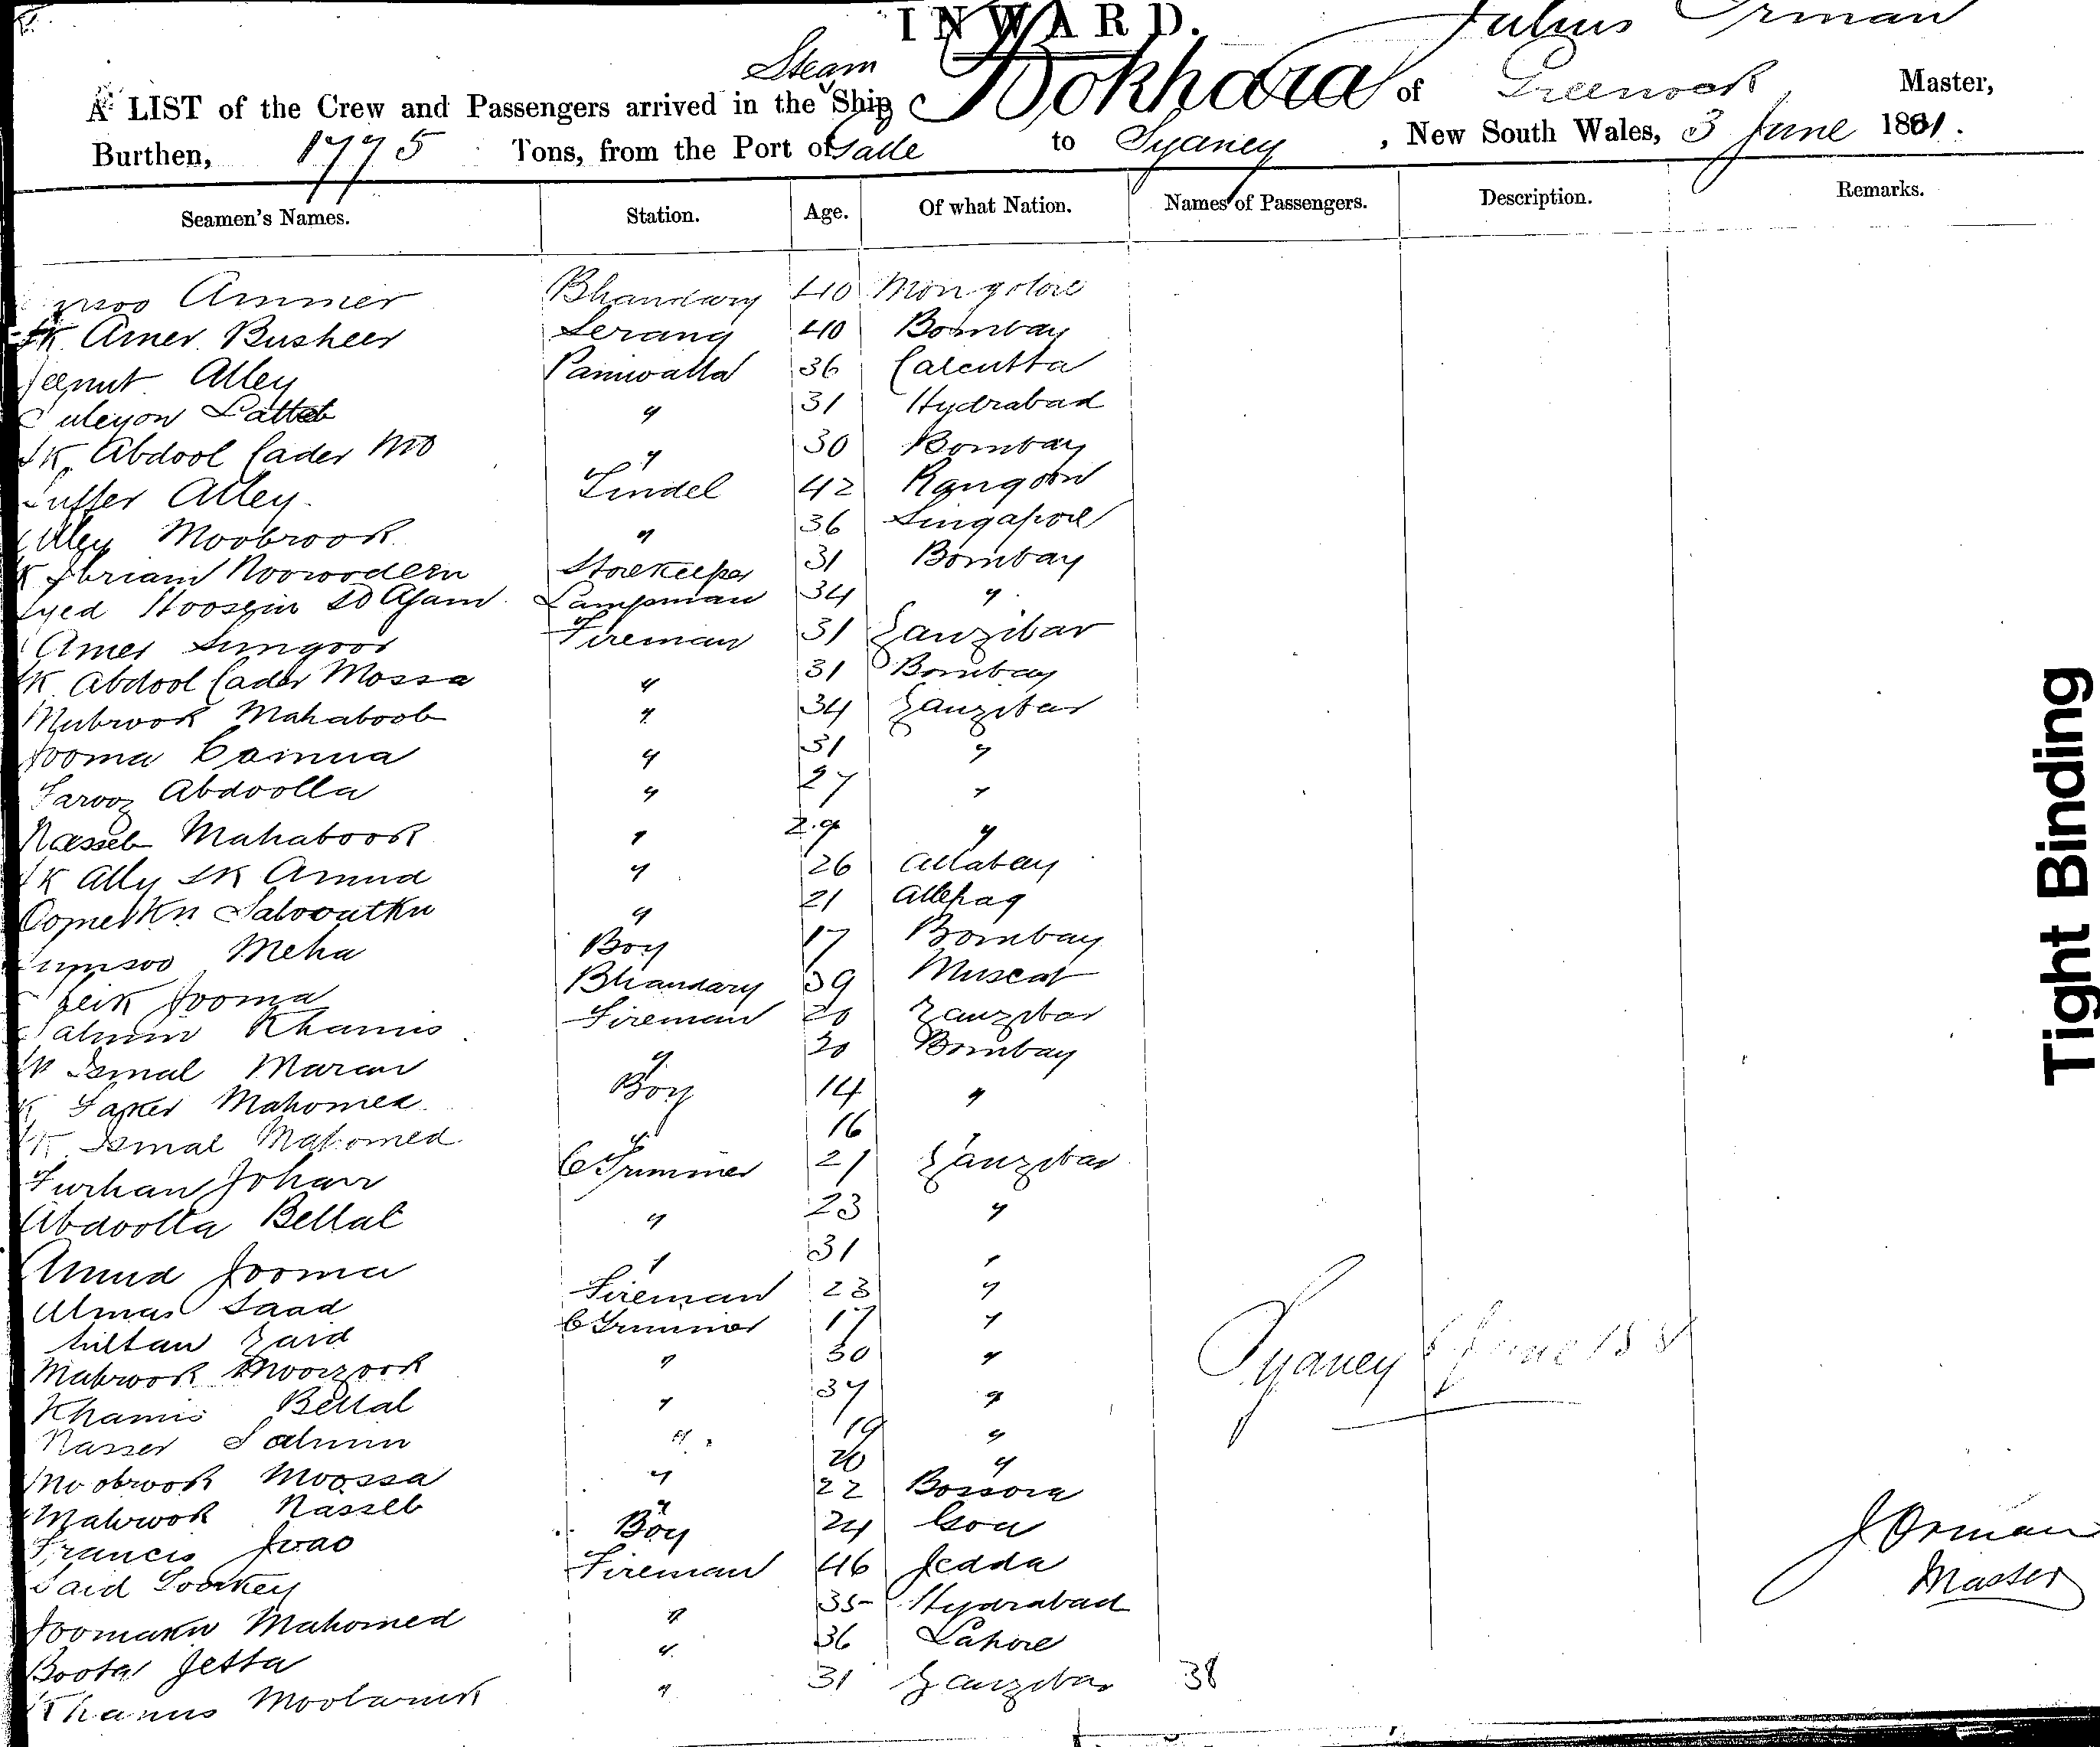 INWARD.
Julius Orman
A LIST of the Crew and Passengers arrived in the Steam Ship Bokhara of Greenock Master,
Burthen, 1775 Tons, from the Port of Galle to Sydney, New South Wales, 3 June 1881.
Seamen's Names. Station. Age. Of what Nation. Names of Passengers. Description. Remarks.
Ammer Bhandary 40 Mongolore
Sk Amer Busheer Serang 40 Bombay
Alley Paniwalla 36 Calcutta
" 31 Hydrabad
Sk Abdool Cader Mo " 30 Bombay
Alley Tindel 42 Rangoon
Alley Moobrook " 36 Singapore
Ibriam Noorodeen Storekeeper 31 Bombay
Syed Hoosein Lampman 34 "
Amer Sungoor Fireman 31 Zanzibar
Sk Abdool Cader Mossa " 31 Bombay
Mubrook Mahaboob " 34 Zanzibar
Jooma " 31 "
Farooz Abdoolla " 27 "
Nasseb Mahabook " 29 "
Sk Ally Sk Amud " 26
" 21
Meha Boy 17 Bombay
Jooma Bhandary 39 Muscat
Khamis Fireman 20 Zanzibar
Ismal " 20 Bombay
Mahomed Boy 14 "
Sk Ismal Mahomed " 16 "
Furhan Johar C Trimmer 21 Zanzibar
Abdoolla Bellal " 23 "
Amud Jooma " 31 "
Almas Saad Fireman 23 "
Sultan Zaid C Trimmer 17 "
Mabrook Moorzook " 30 "
Khamis Bellal " 37 "
Nasser Salmin " 19 "
Moobrook Moossa " 20 "
Mabrook Nasseb " 22 Bossora
Francis Joao Boy 24 Goa
Said Fireman 46 Jedda
Mahomed " 35 Hydrabad
Boota Jetta " 36 Lahore
Khamis Moobaruk " 31 Zanzibar 38
Sydney 6 June 188
J Orman
Master
Tight Binding